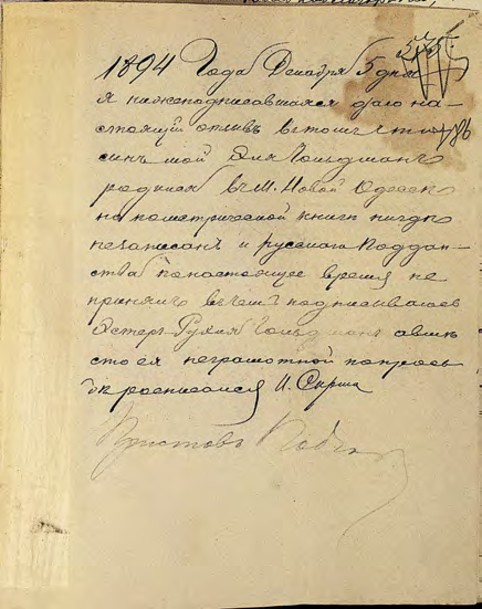 1894 Года Декабря 5 дня
я нижеподписавшаяся даю на-
стоящий отзывъ въ томъ что
сынъ мой Эля Гольдманъ
родился въ М. Новой Одессе
но по метрической книги нигде
незаписанъ и русскаго поддан-
ства по настоящее время не
принялъ въ чемъ подписываюсь
Эстеръ Рухля Гольдманъ а вме
сто ея неграмотной по прозь
бе росписался И.
Приставъ